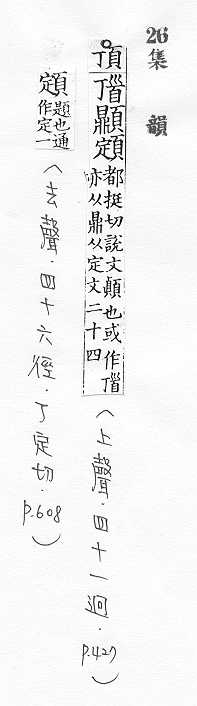 26 集韻
頂𩠑顠顁都挺切說文顛也或作𩠑亦从鼎从定文二十四
(上聲.四十一迥.P.427)
顁題也通作定一
(去聲.四十六徑.丁定切.P.608)